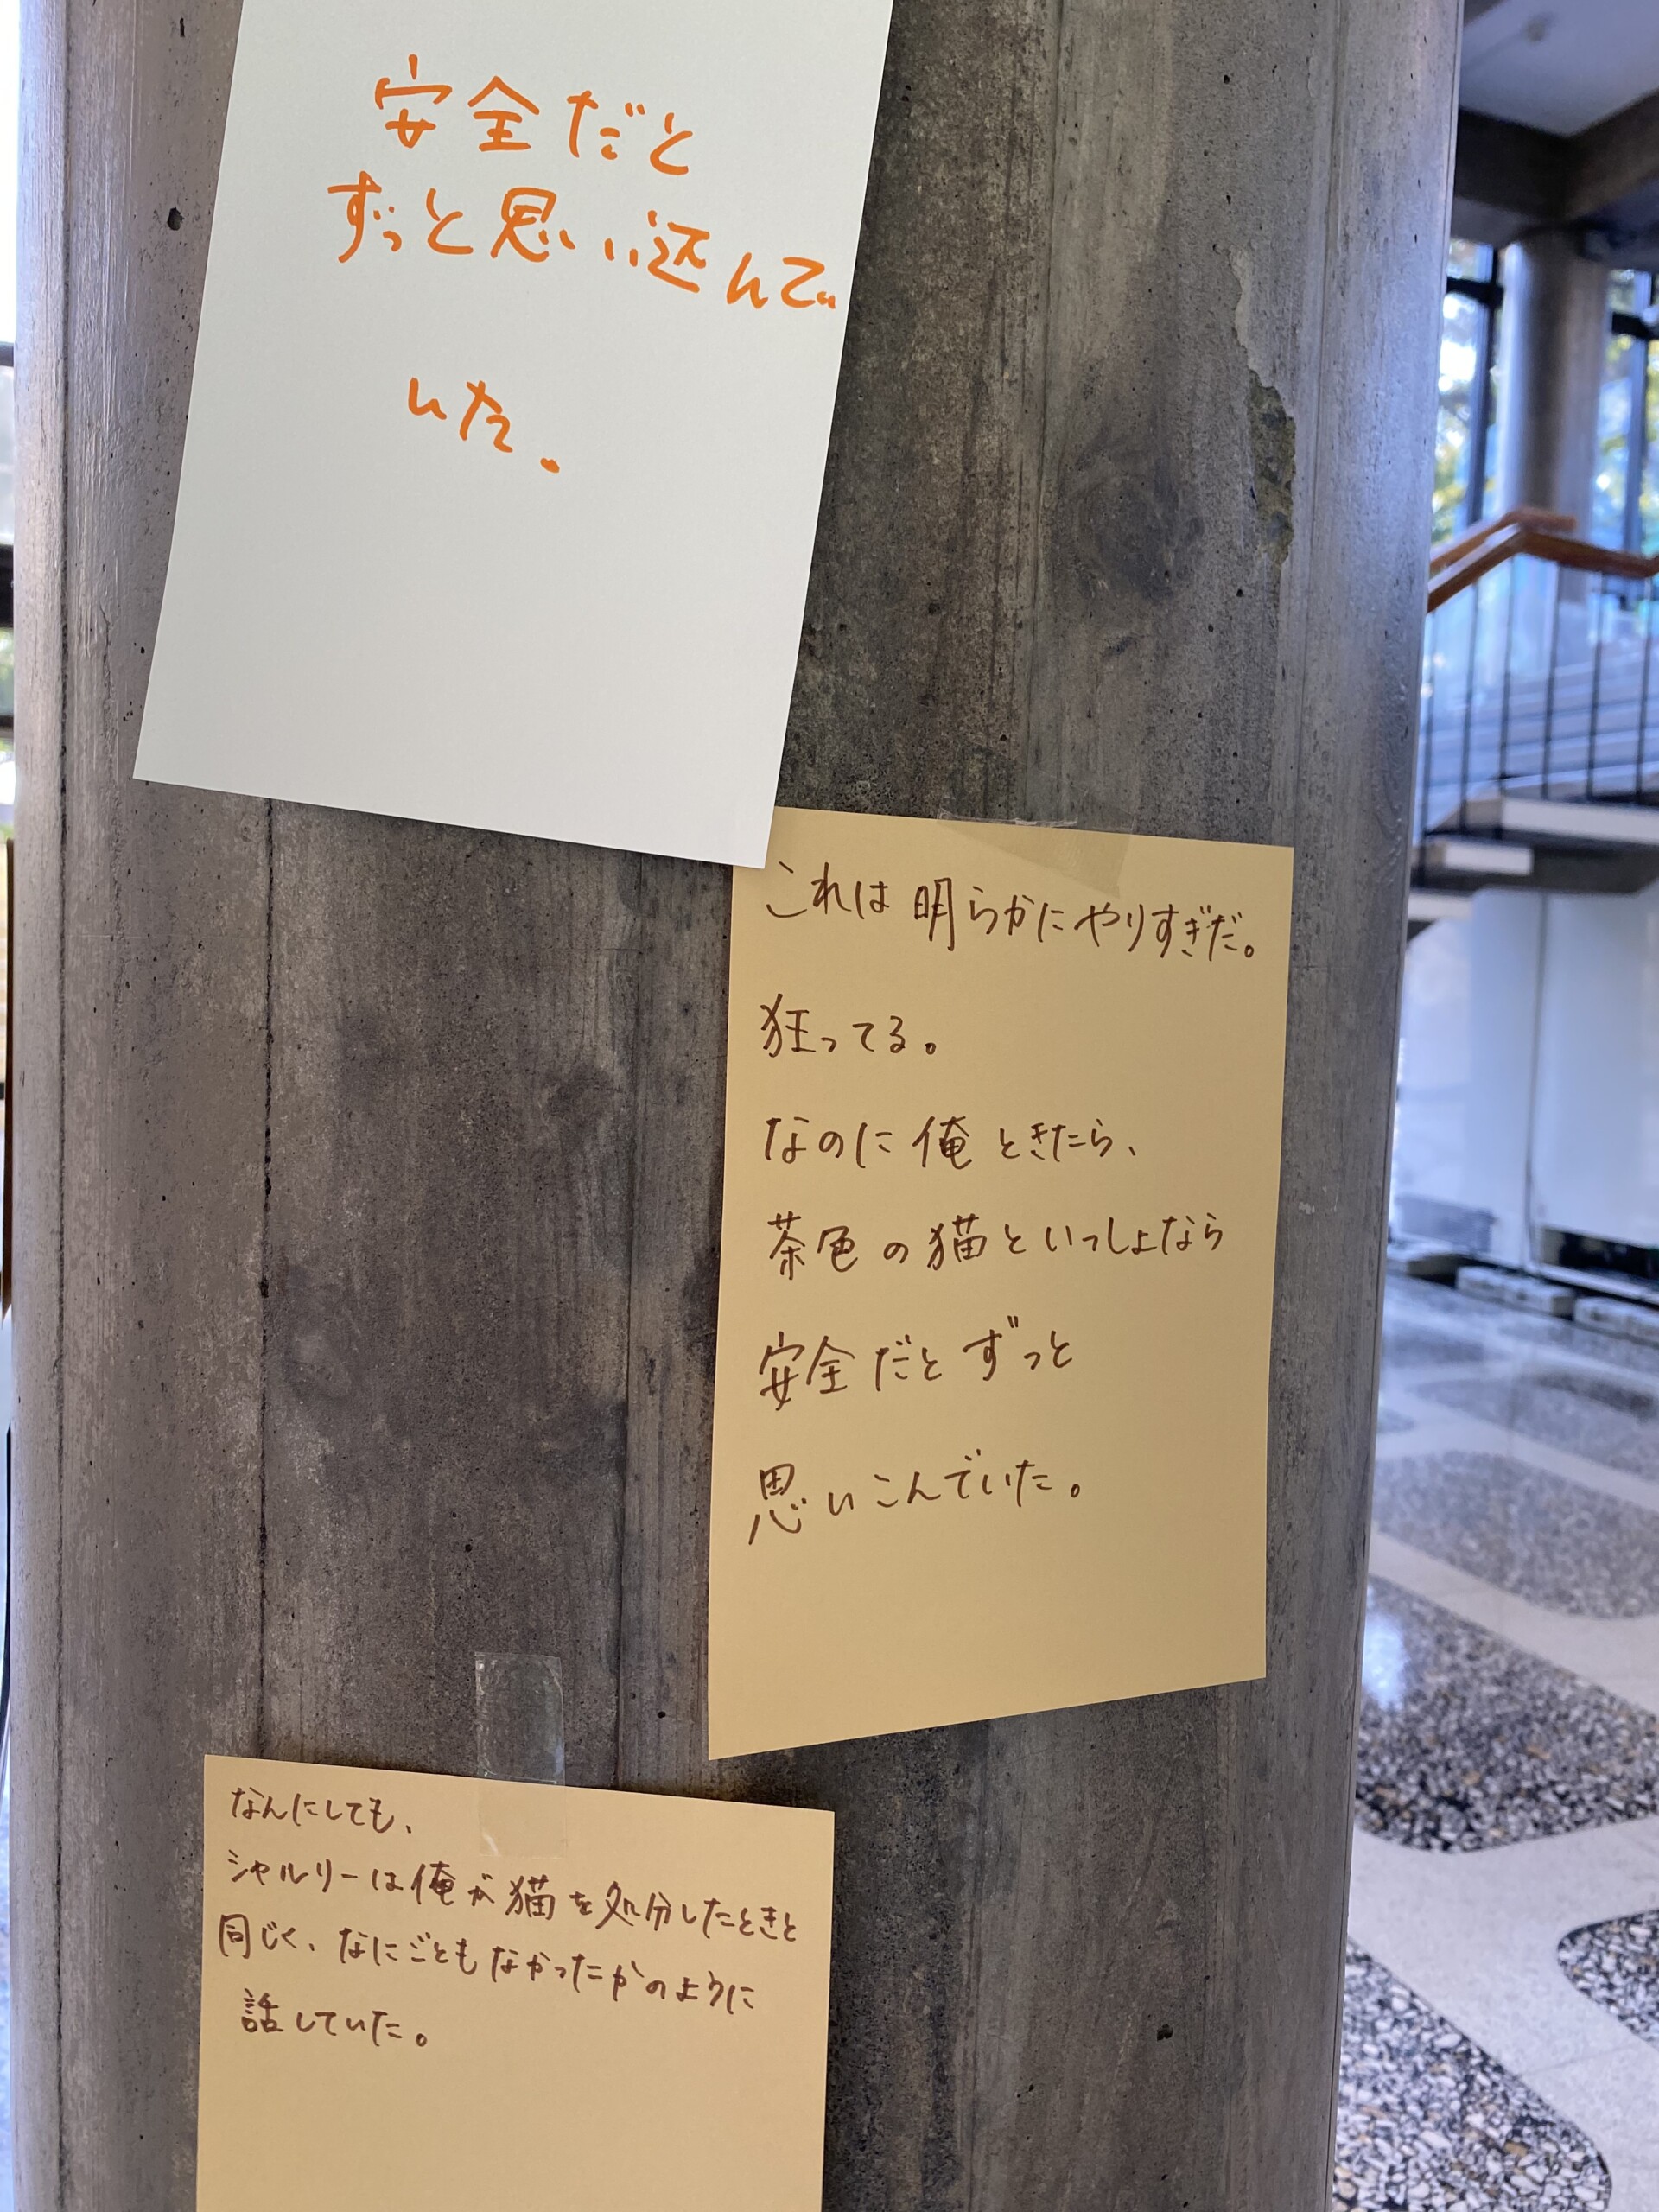 安全だと
ずっと思い込んで
いた。
これは明らかにやりすぎだ。
狂ってる。
なのに俺ときたら、
茶色の猫といっしょなら
安全だとずっと
思いこんでいた。
なんにしても、
シャルリーは俺が猫を処分したときと
同じく、なにごともなかったかのように
話していた。